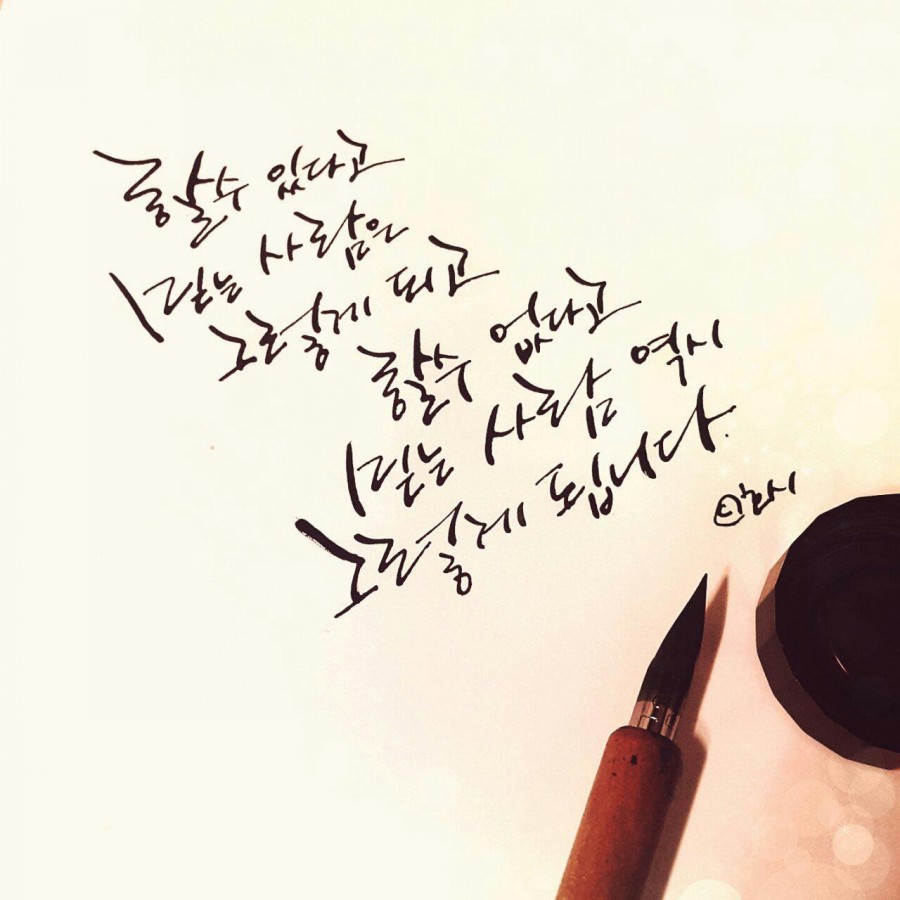 할수 있다고
믿는 사람은
그렇게 되고
할수 없다고
믿는 사람 역시
그렇게 됩니다.